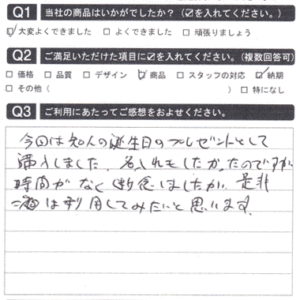 Q1 当社の商品はいかがでしたか?(☑を入れてください。)
☑大変よくできました □よくできました □頑張りましょう
Q2 ご満足いただけた項目に☑を入れてください。(複数回答可)
□価格 □品質 □デザイン ☑商品 □スタッフの対応 ☑納期
□その他( ) □特になし
Q3 ご利用にあたってご感想をおよせください。
今回は知人の誕生日のプレゼントとして
購入しました。名入れもしたかったのですが
時間がなく断念しましたが、是非
次回は利用してみたいと思います。